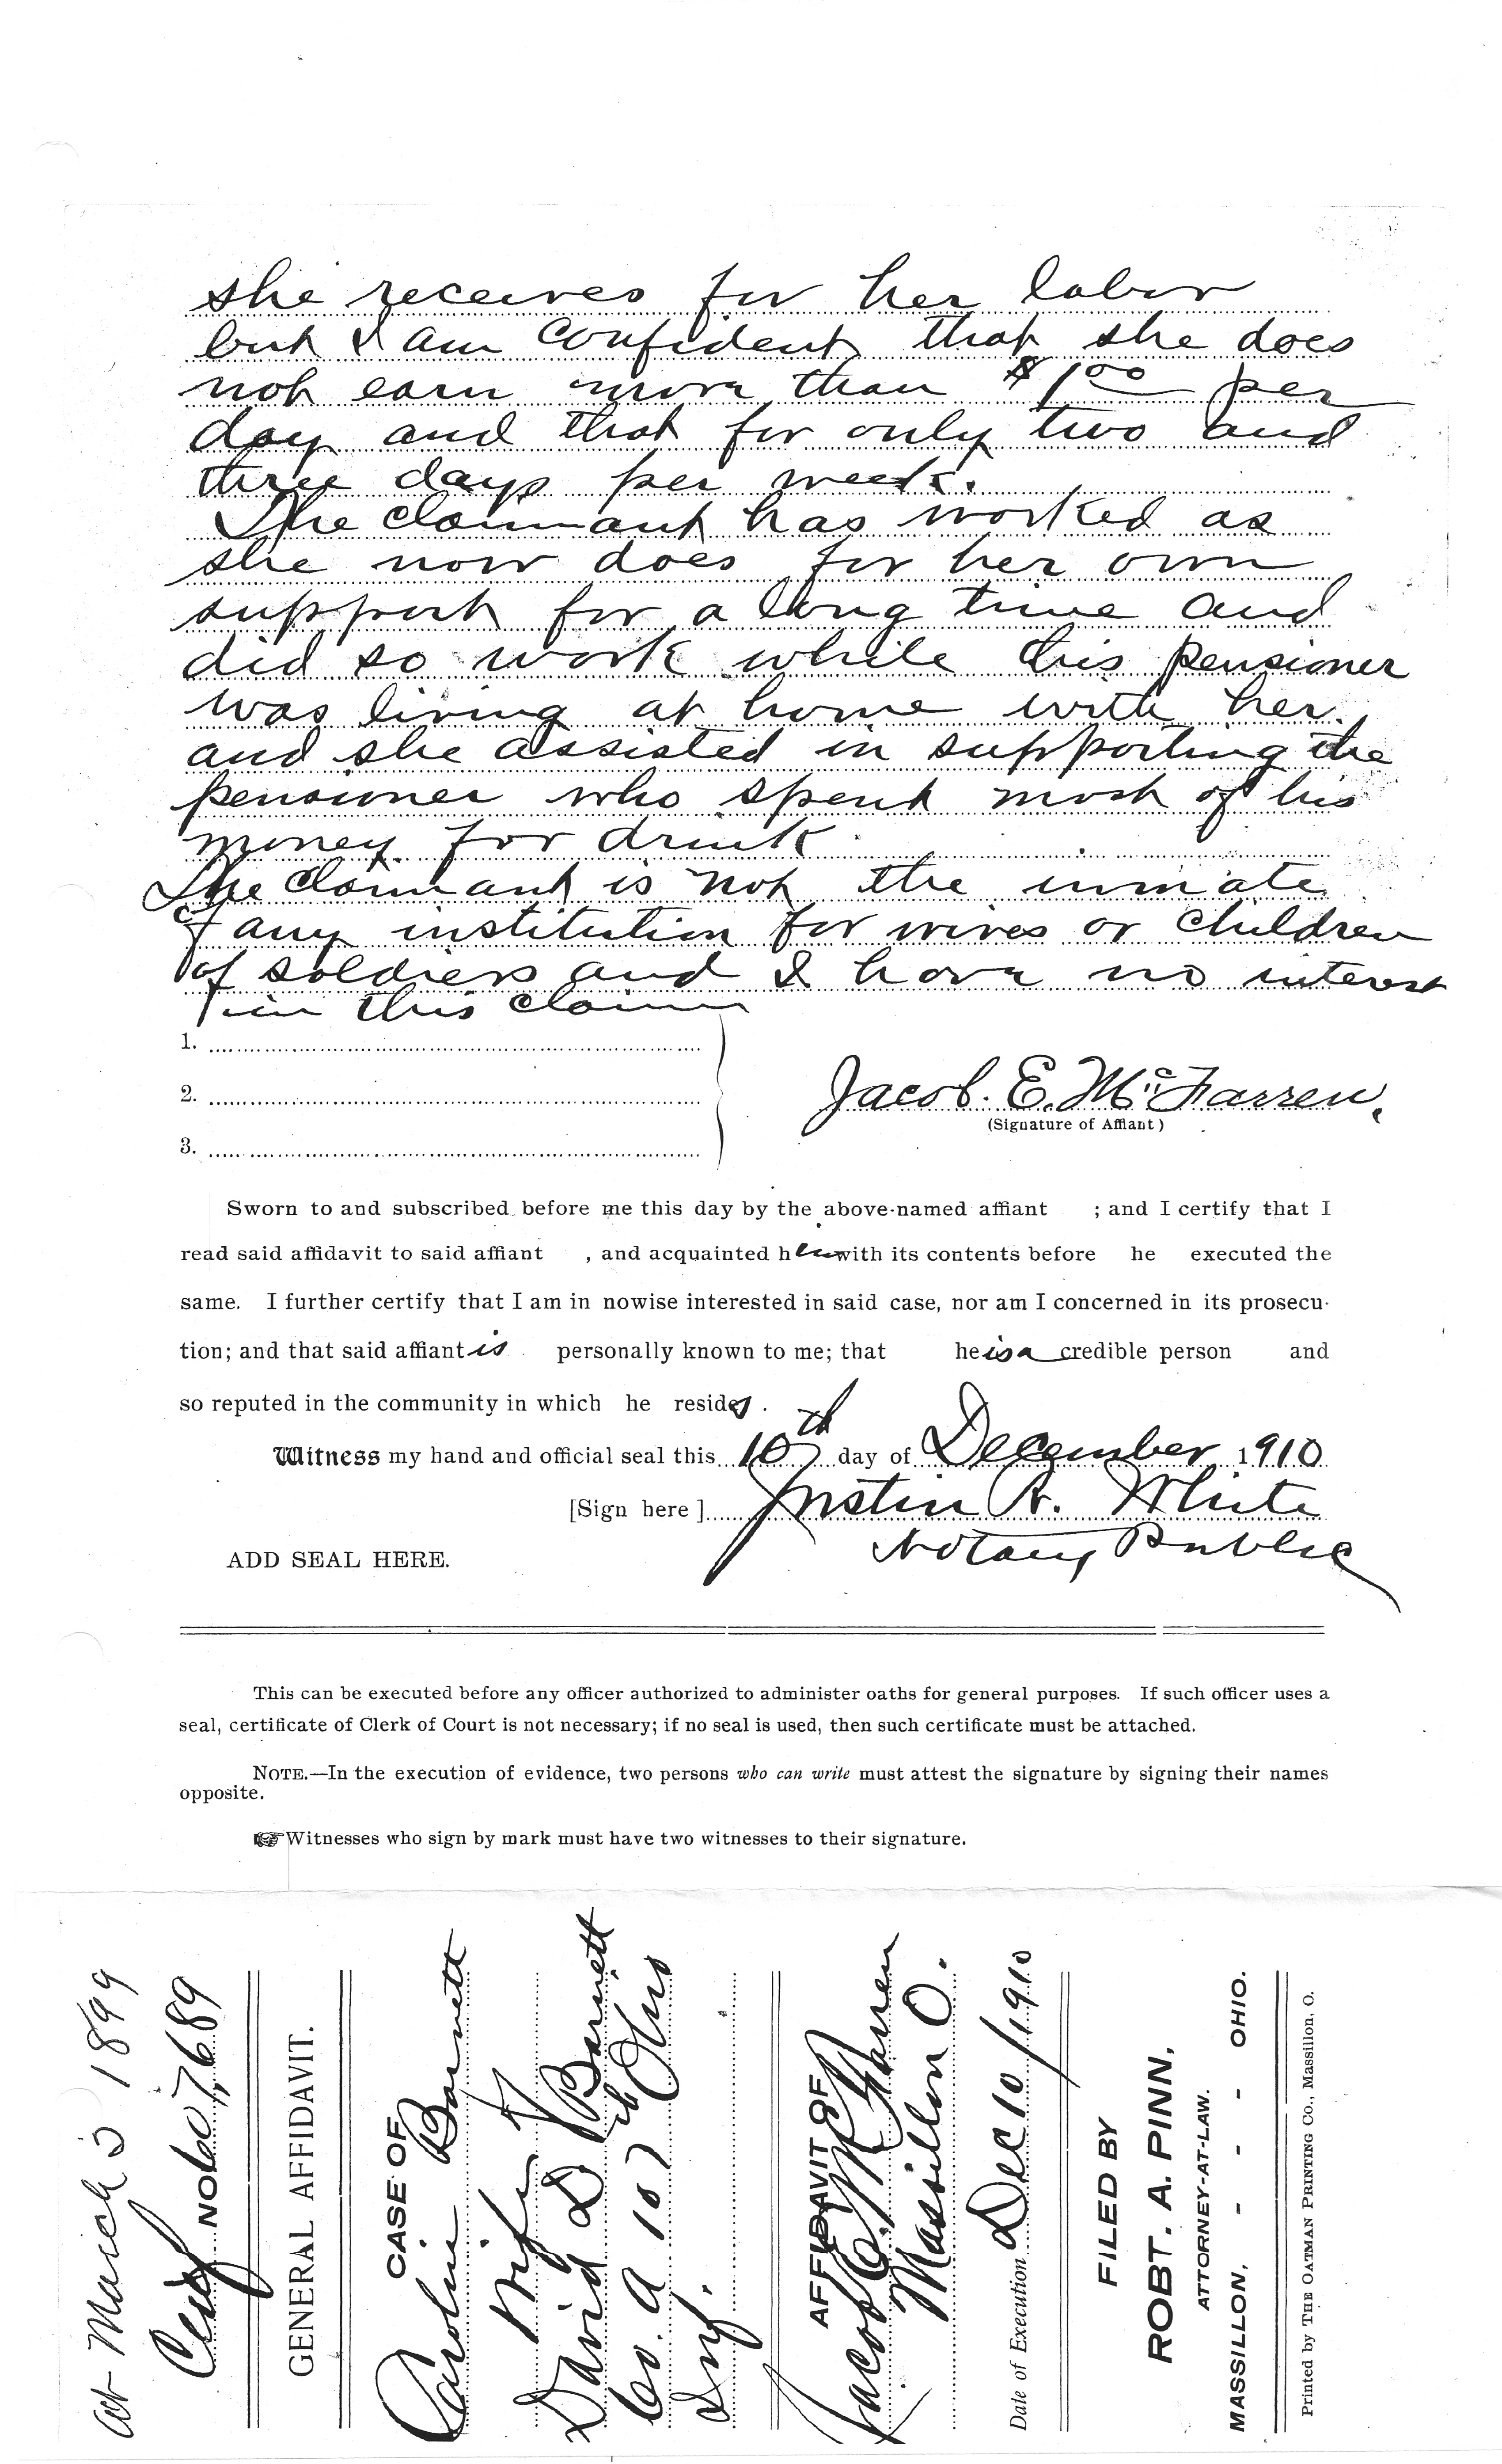 she receives for her labor
but I am confident that she does
not earn more than $1.00 per
day and that for only two and
three days per week.
The claimant has worked as
she now does for her own
support for a long time and
did so work while this pensioner
was living at home with her
and she assisted in supporting the
pensioner who spent most of his
money for drink.
The claimant is not the inmate
of any institution for wives or children
of soldiers and I have no interest
in this claim
1.
2.
3.
Jacob. E. McFarren.
(Signature of Affiant)
Sworn to and subscribed before me this day by the above-named affiant ; and I certify that I
read said affidavit to said affiant , and acquainted him with its contents before he executed the
same. I further certify that I am in nowise interested in said case, nor am I concerned in its prosecu-
tion; and that said affiant is personally known to me; that he is a credible person and
so reputed in the community in which he resides.
Witness my hand and official seal this 10th day of December 1910
[Sign here] Justin R. White
Notary Public
ADD SEAL HERE.
This can be executed before any officer authorized to administer oaths for general purposes. If such officer uses a
seal, certificate of Clerk of Court is not necessary; if no seal is used, then such certificate must be attached.
NOTE.—In the execution of evidence, two persons who can write must attest the signature by signing their names
opposite.
☞ Witnesses who sign by mark must have two witnesses to their signature.
Act March 3 1899
Cert No 607,689
GENERAL AFFIDAVIT.
CASE OF
Caroline Barnett
Wife of
David D Barnett
Co. A 107th Ohio
Inf.
AFFIDAVIT OF
Jacob E. McFarren
Massillon O.
Date of Execution Dec 10/1910
FILED BY
ROBT. A. PINN,
ATTORNEY-AT-LAW.
MASSILLON, - - - OHIO.
Printed by THE OATMAN PRINTING Co., Massillon, O.